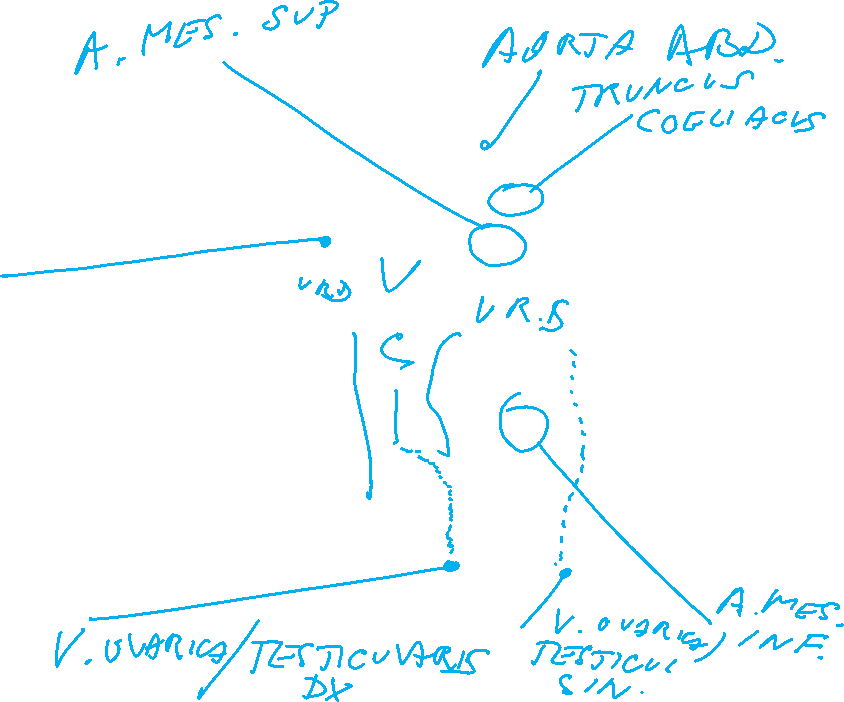 A. MES. SUP
AORTA ABD.
TRUNCUS
COELIACUS
VRD
V
C
I
VR.S
V. OVARICA/TESTICULARIS
DX
V. OVARICA/
TESTICUL
SIN.
A. MES.
INF.